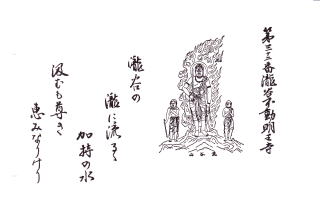 第三三番瀧谷不動明王寺
瀧谷の
瀧に流るゝ
加持の水
汲むも尊き
恵みなりけり